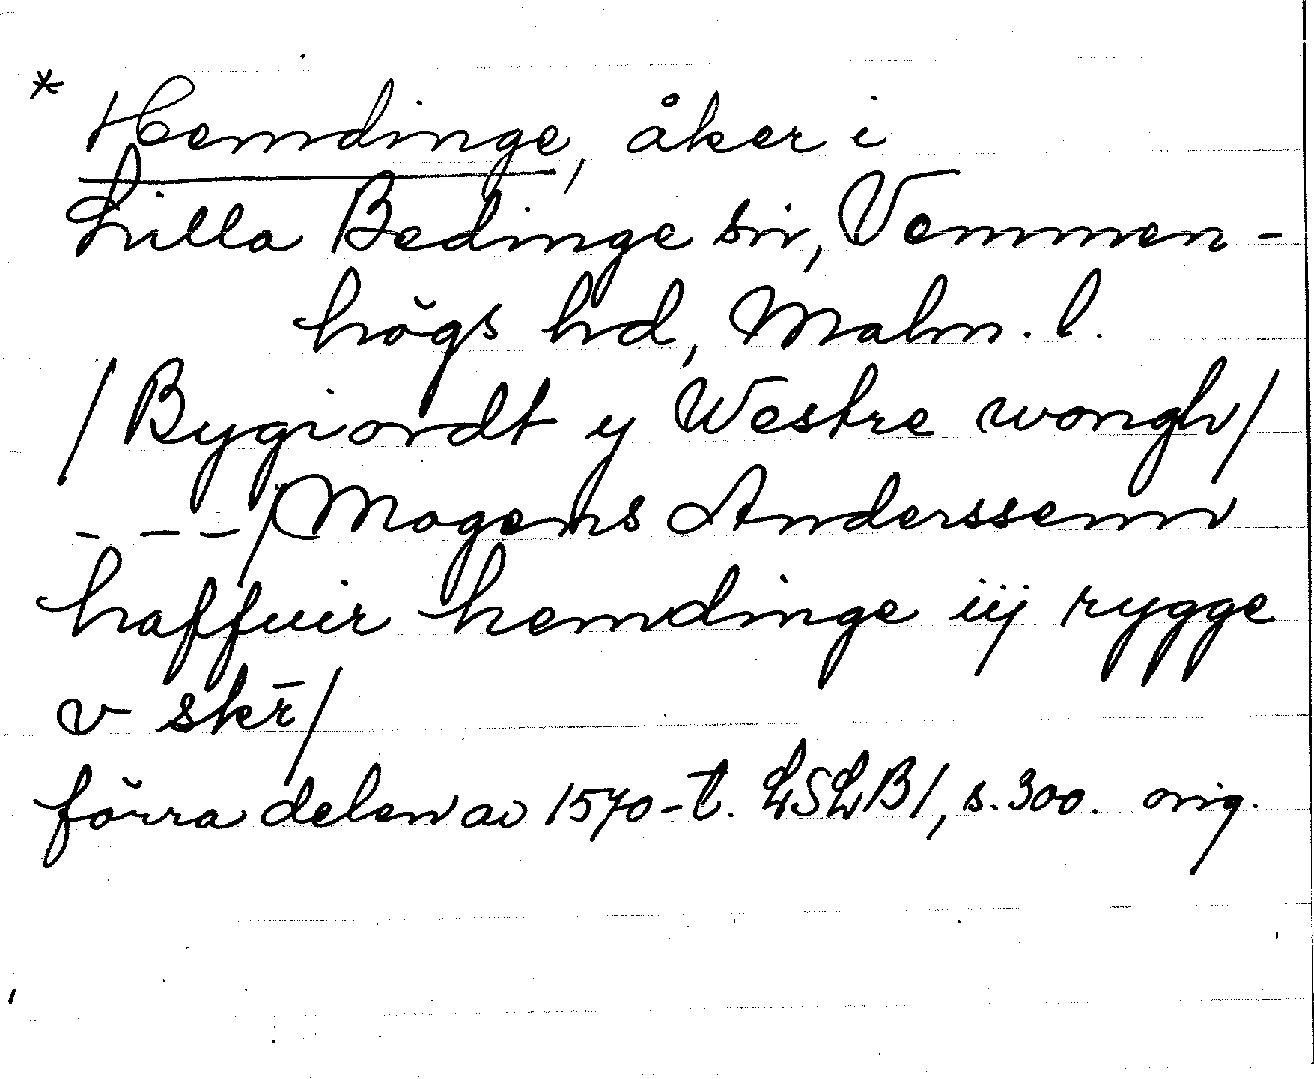 * Hemdinge, åker i
Lilla Bedinge sn, Vemmen-
högs hd, Malm. l.
/Bygiordt y Westre wongh/
- - -/Mogens Anderssenn
haffuir hemdinge iij rygge
v skr̄/
förra delen av 1570-t. LSLB1, s.300. orig.